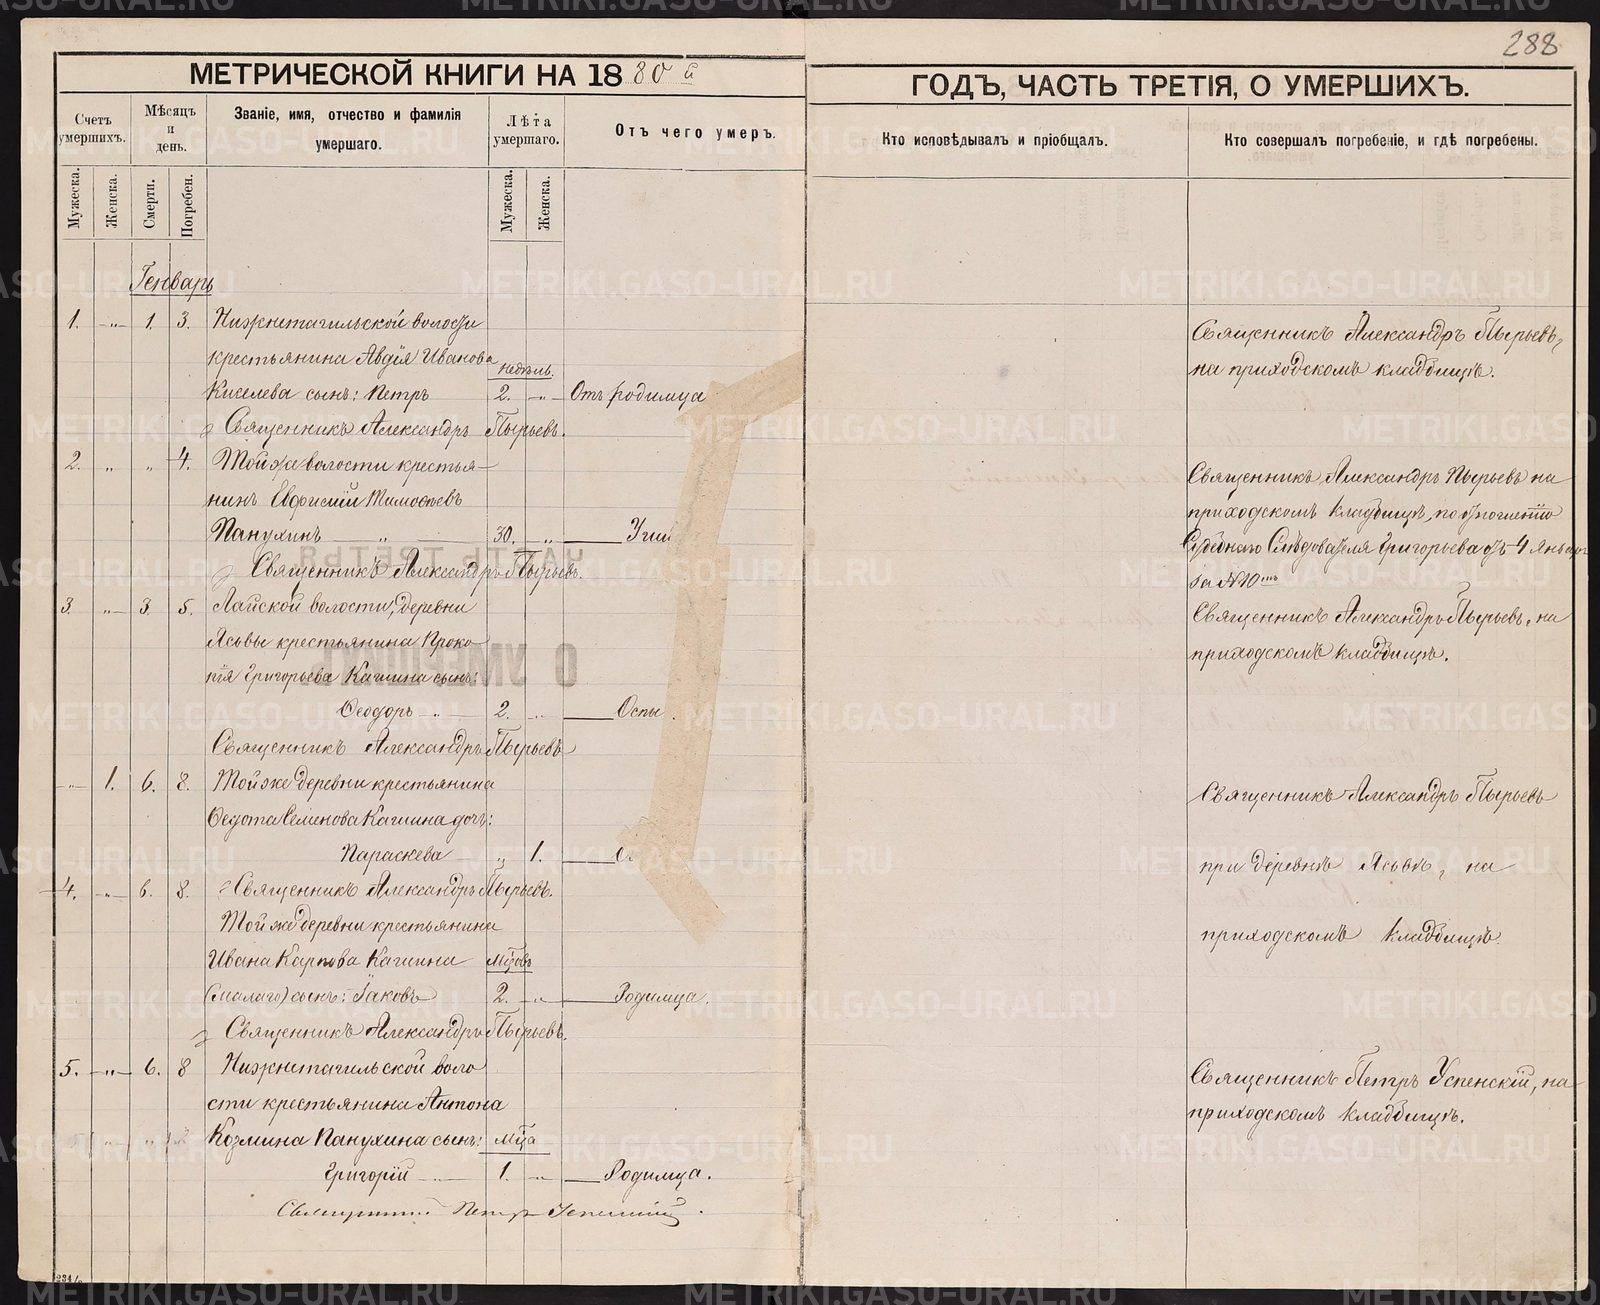 288
МЕТРИЧЕСКОЙ КНИГИ НА 1880 й
ГОДЪ, ЧАСТЬ ТРЕТІЯ, О УМЕРШИХЪ.
Счетъ умершихъ.
Мѣсяцъ и день.
Званіе, имя, отчество и фамилія умершаго.
Лѣта умершаго.
Отъ чего умеръ.
Кто исповѣдывалъ и пріобщалъ.
Кто совершалъ погребеніе, и гдѣ погребены.
Мужеска. Женска. Смерти. Погребен. Мужеска. Женска.
Генварь
1. „ 1. 3. Нижнетагильской волости
крестьянина Авдія Иванова
недѣль.
Киселева сынъ: Петръ 2. „ Отъ родимца
Священникъ Александръ Пырьевъ, на приходскомъ кладбищѣ.
Священникъ Александръ Пырьевъ.
2. „ „ 4. Той же волости крестья-
нинъ Евфисній Тимофѣевъ
Панухинъ „ 30. „
Священникъ Александръ Пырьевъ на
приходскомъ кладбищѣ, по отношенію
Судебнаго Слѣдователя Григорьева отъ 4 Января
за № 10мъ
Священникъ Александръ Пырьевъ.
3. „ 3. 5. Лайской волости, деревни
Ясьвы крестьянина Проко-
пія Григорьева Кашина сынъ:
Ѳеодоръ „ 2. „ Оспы.
Священникъ Александръ Пырьевъ, на
приходскомъ кладбищѣ.
Священникъ Александръ Пырьевъ
„ 1. 6. 8. Той же деревни крестьянина
Ѳедота Семенова Кашина дочь:
Параскева „ 1.
Священникъ Александръ Пырьевъ
при деревнѣ Ясьвѣ, на
приходскомъ кладбищѣ.
Священникъ Александръ Пырьевъ.
4. „ 6. 8. Той же деревни крестьянина
Ивана Карпова Кашина мцовъ
(малаго) сынъ: Іаковъ 2. „ Родимца.
Священникъ Александръ Пырьевъ.
5. „ 6. 8 Нижнетагильской воло
сти крестьянина Антона
Козмина Панухина сынъ: мца
Григорій „ 1. „ Родимца.
Священникъ Петръ Успенскій, на
приходскомъ кладбищѣ.
Священникъ Петръ Успенскій.
METRIKI.GASO-URAL.RU